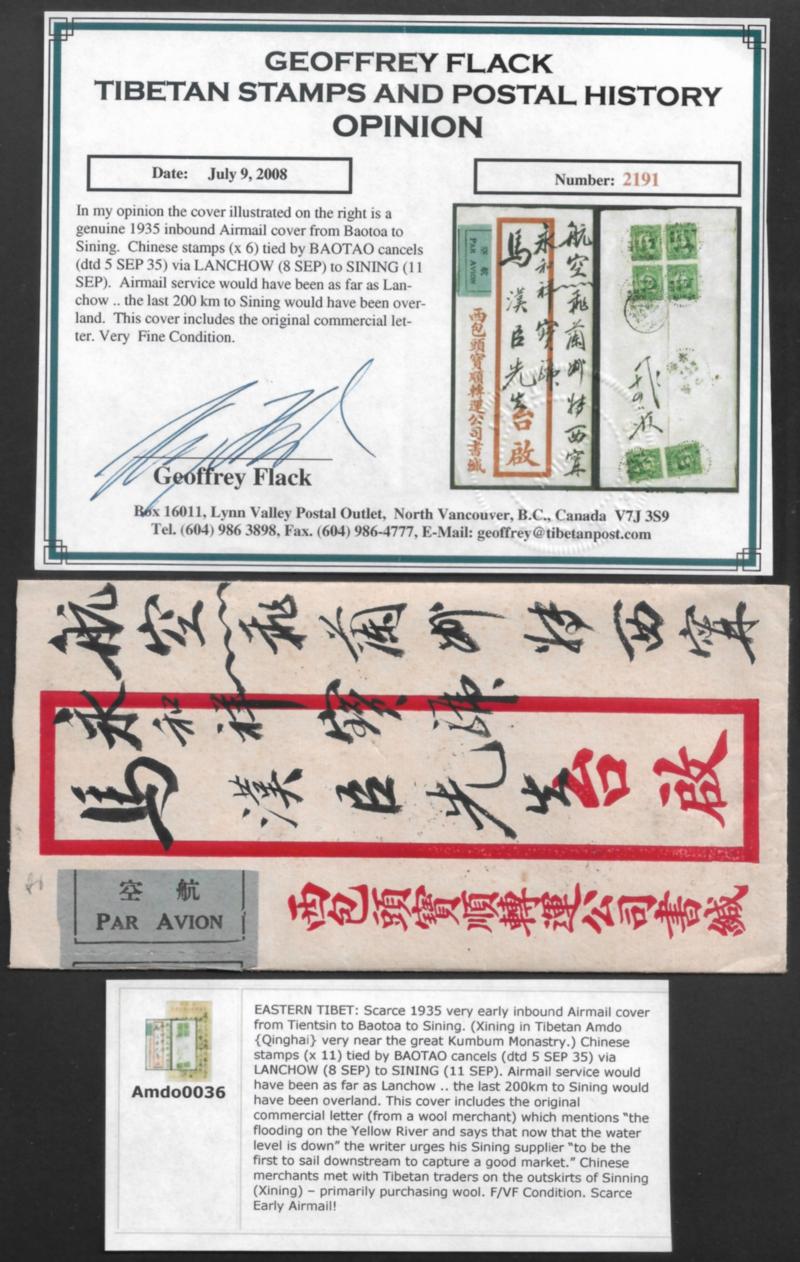 GEOFFREY FLACK
TIBETAN STAMPS AND POSTAL HISTORY
OPINION
Date: July 9, 2008
Number: 2191
In my opinion the cover illustrated on the right is a
genuine 1935 inbound Airmail cover from Baotoa to
Sining. Chinese stamps (x 6) tied by BAOTAO cancels
(dtd 5 SEP 35) via LANCHOW (8 SEP) to SINING (11
SEP). Airmail service would have been as far as Lan-
chow .. the last 200 km to Sining would have been over-
land. This cover includes the original commercial let-
ter. Very Fine Condition.
航空飛蘭州特西寧
永和祥寶號
馬漢臣先生台啟
空航
PAR AVION
西包頭寶順轉運公司書緘
Geoffrey Flack
Box 16011, Lynn Valley Postal Outlet, North Vancouver, B.C., Canada V7J 3S9
Tel. (604) 986 3898, Fax. (604) 986-4777, E-Mail: geoffrey@tibetanpost.com
航空飛蘭州特西寧
永和祥寶號
馬漢臣先生台啟
空航
PAR AVION
西包頭寶順轉運公司書緘
Amdo0036
EASTERN TIBET: Scarce 1935 very early inbound Airmail cover
from Tientsin to Baotoa to Sining. (Xining in Tibetan Amdo
{Qinghai} very near the great Kumbum Monastry.) Chinese
stamps (x 11) tied by BAOTAO cancels (dtd 5 SEP 35) via
LANCHOW (8 SEP) to SINING (11 SEP). Airmail service would
have been as far as Lanchow .. the last 200km to Sining would
have been overland. This cover includes the original
commercial letter (from a wool merchant) which mentions “the
flooding on the Yellow River and says that now that the water
level is down” the writer urges his Sining supplier “to be the
first to sail downstream to capture a good market.” Chinese
merchants met with Tibetan traders on the outskirts of Sinning
(Xining) – primarily purchasing wool. F/VF Condition. Scarce
Early Airmail!